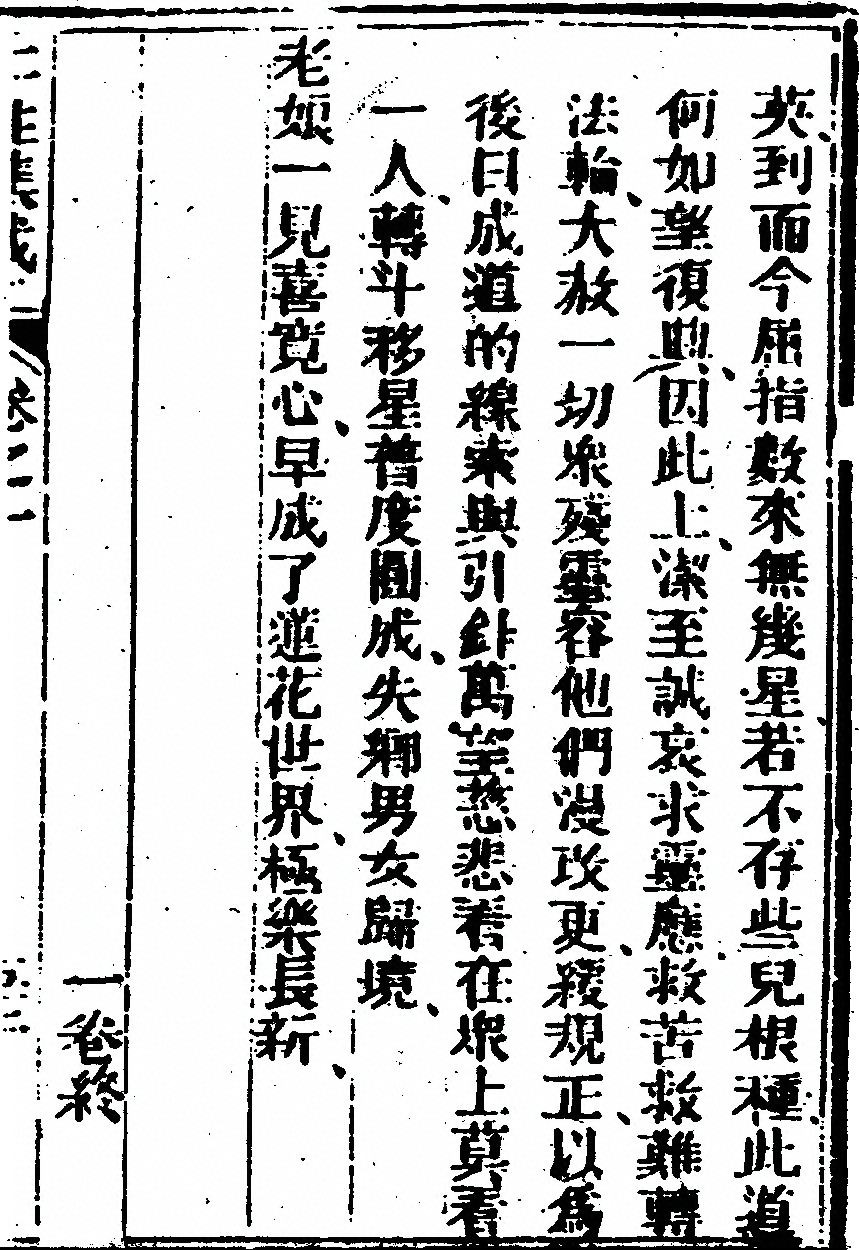 英到而今屈指數來無幾星若不存些兒根種此道
何如望復興因此上潔至誠哀求靈應救苦救難轉
法輪大赦一切眾殘靈容他們漫改更緩規正以爲
後日成道的線索與引針萬望慈悲看在眾上莫看
一人轉斗移星普度圓成失鄉男女歸境
老娘一見喜寬心早成了蓮花世界極樂長新
一卷終